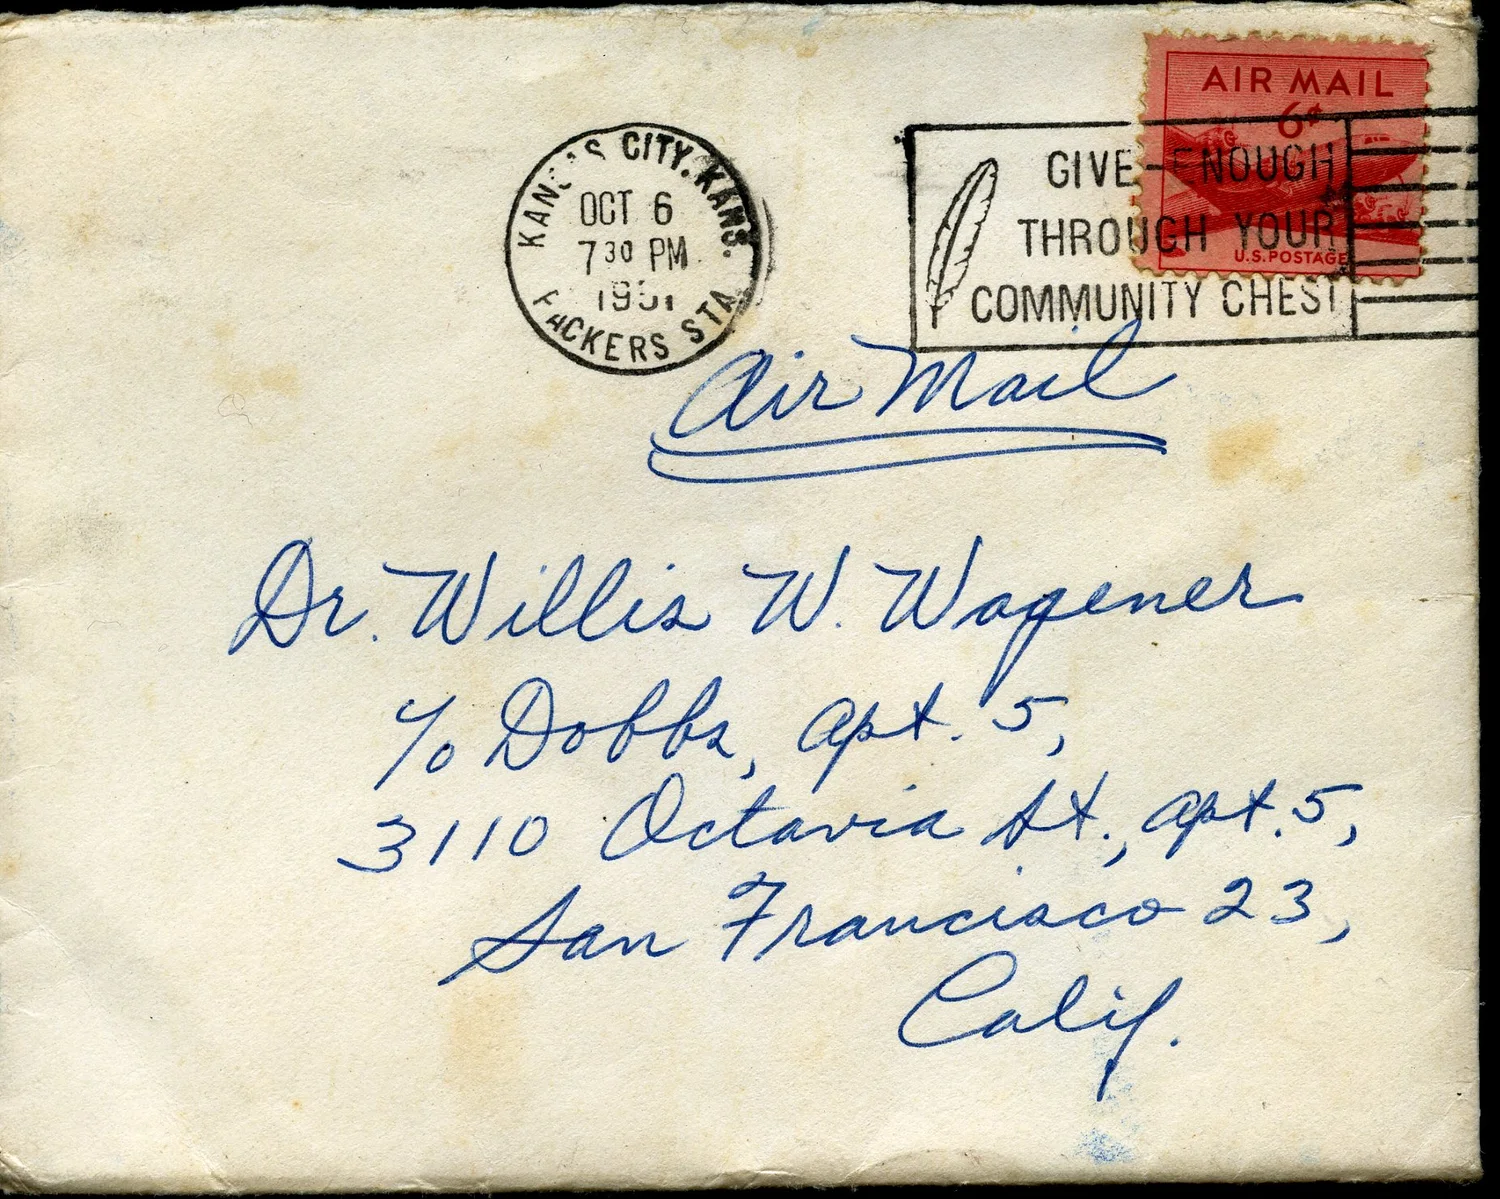 AIR MAIL
6¢
U.S. POSTAGE
KANSAS CITY, KANS.
OCT 6
7 30 PM
1951
PACKERS STA.
GIVE-ENOUGH
THROUGH YOUR
COMMUNITY CHEST
Air Mail
Dr. Willis W. Wagener
c/o Dobbs, Apt. 5,
3110 Octavia St., Apt. 5,
San Francisco 23,
Calif.